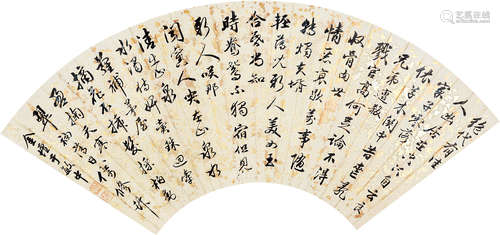 絕代有佳
人幽居在空谷自云良
家子零落
依草木關中昔喪亂
兄弟遭殺
戮官高何足論不得
收骨肉世
情惡衰歇萬事隨
轉燭夫婿
輕薄兒新人美如玉
合昏尚知
時鴛鴦不獨宿但見
新人笑那
聞舊人哭在山泉水
清出山泉
水濁侍婢賣珠迴牽
蘿補茅屋
摘花不插髮采柏動
盈掬天寒
翠袖薄日暮倚修竹